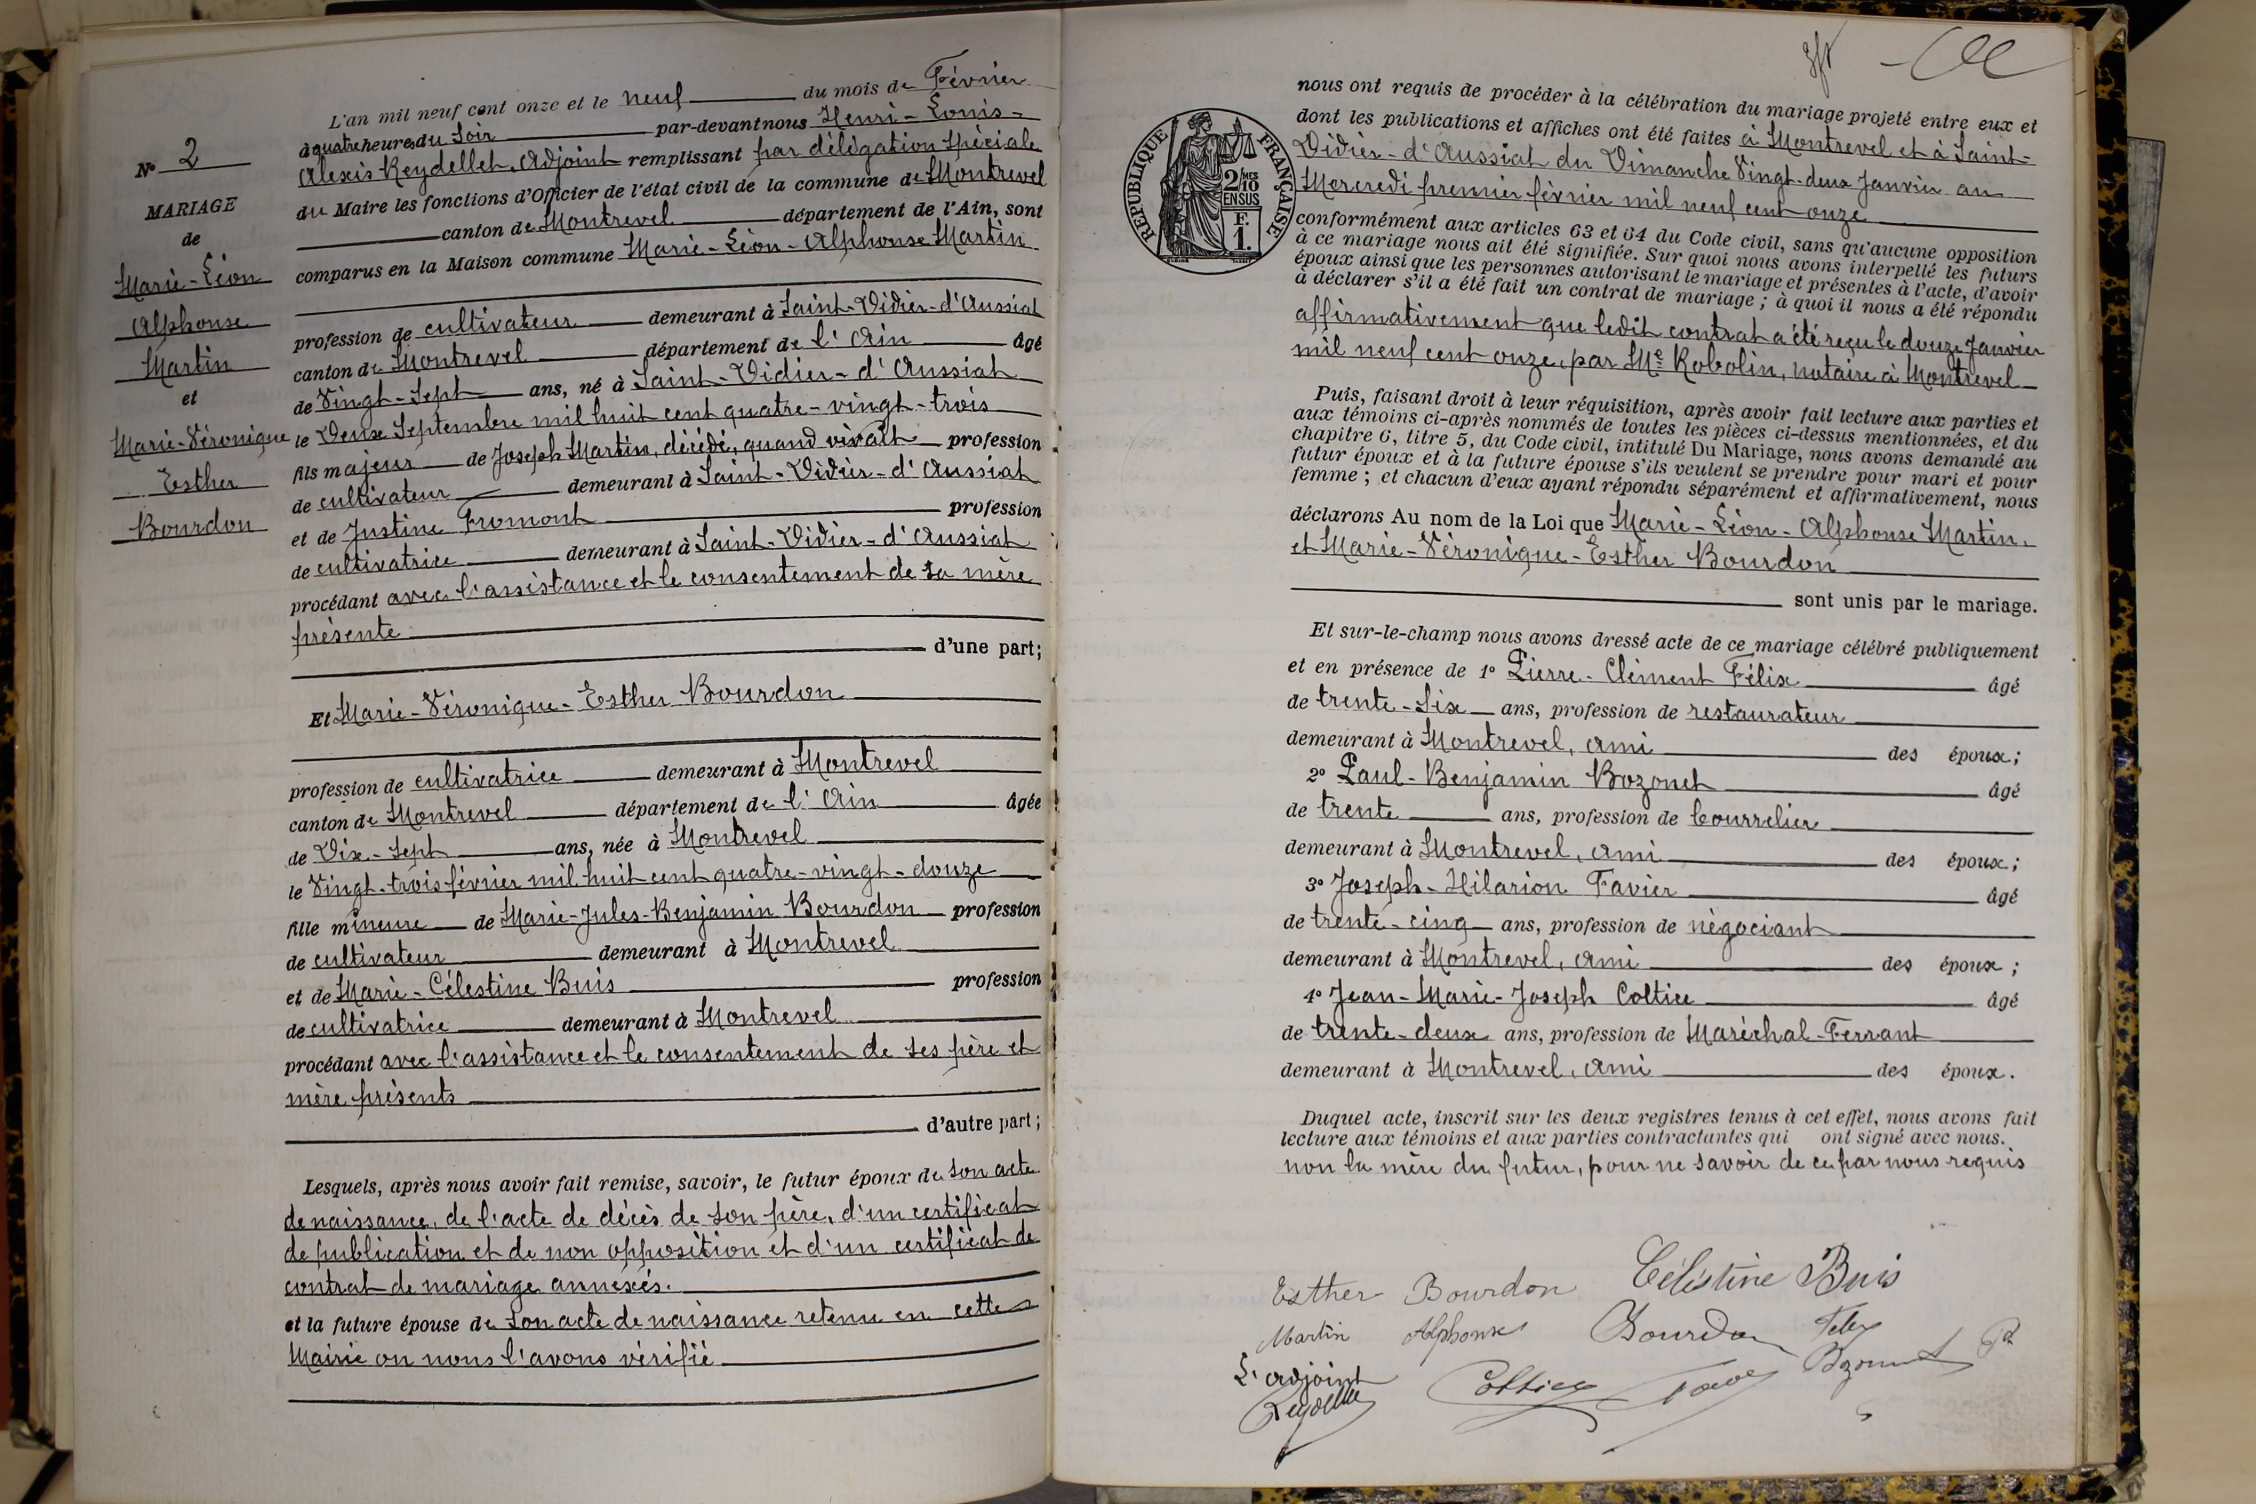 L'an mil neuf cent onze et le neuf du mois de Février
à quatre heures du Soir par-devant nous Henri-Louis-
Alexis Reydellet, Adjoint remplissant par délégation spéciale
du Maire les fonctions d'Officier de l'état civil de la commune de Montrevel
canton de Montrevel département de l'Ain, sont
comparus en la Maison commune Marie-Léon-Alphonse Martin
profession de cultivateur demeurant à Saint-Didier-d'Aussiat
canton de Montrevel département de l'Ain âgé
de Vingt-Sept ans, né à Saint-Didier-d'Aussiat
le Deux Septembre mil huit cent quatre-vingt-trois
fils majeur de Joseph Martin, décédé, quand vivait profession
de cultivateur demeurant à Saint-Didier-d'Aussiat
et de Justine Fromont profession
de cultivatrice demeurant à Saint-Didier-d'Aussiat
procédant avec l'assistance et le consentement de sa mère
présente
d'une part;
Et Marie-Véronique-Esther Bourdon
profession de cultivatrice demeurant à Montrevel
canton de Montrevel département de l'Ain âgée
de Dix-Sept ans, née à Montrevel
le Vingt-trois février mil huit cent quatre-vingt-douze
fille mineure de Marie-Jules-Benjamin Bourdon profession
de cultivateur demeurant à Montrevel
et de Marie-Célestine Buis profession
de cultivatrice demeurant à Montrevel
procédant avec l'assistance et le consentement de ses père et
mère présents
d'autre part;
Lesquels, après nous avoir fait remise, savoir, le futur époux de son acte
de naissance, de l'acte de décès de son père, d'un certificat
de publication et de non opposition et d'un certificat de
contrat de mariage annexés.
et la future épouse de son acte de naissance retenu en cette
Mairie où nous l'avons vérifié
No 2
MARIAGE
de
Marie-Léon
Alphonse
Martin
et
Marie-Véronique
Esther
Bourdon
RÉPUBLIQUE FRANÇAISE
2/10 MES
EN SUS
F.
1.
nous ont requis de procéder à la célébration du mariage projeté entre eux et
dont les publications et affiches ont été faites à Montrevel et à Saint-
Didier-d'Aussiat du Dimanche Vingt-deux Janvier au
Mercredi premier février mil neuf cent onze
conformément aux articles 63 et 64 du Code civil, sans qu'aucune opposition
à ce mariage nous ait été signifiée. Sur quoi nous avons interpellé les futurs
époux ainsi que les personnes autorisant le mariage et présentes à l'acte, d'avoir
à déclarer s'il a été fait un contrat de mariage; à quoi il nous a été répondu
affirmativement que ledit contrat a été reçu le douze Janvier
mil neuf cent onze, par Me Robolin, notaire à Montrevel
Puis, faisant droit à leur réquisition, après avoir fait lecture aux parties et
aux témoins ci-après nommés de toutes les pièces ci-dessus mentionnées, et du
chapitre 6, titre 5, du Code civil, intitulé Du Mariage, nous avons demandé au
futur époux et à la future épouse s'ils veulent se prendre pour mari et pour
femme; et chacun d'eux ayant répondu séparément et affirmativement, nous
déclarons Au nom de la Loi que Marie-Léon-Alphonse Martin.
et Marie-Véronique-Esther Bourdon
sont unis par le mariage.
Et sur-le-champ nous avons dressé acte de ce mariage célébré publiquement
et en présence de 1o Pierre-Clément Félix âgé
de trente-Six ans, profession de restaurateur
demeurant à Montrevel, ami des époux;
2o Paul-Benjamin Bozonet âgé
de trente ans, profession de bourrelier
demeurant à Montrevel, ami des époux;
3o Joseph-Hilarion Favier âgé
de trente-cinq ans, profession de négociant
demeurant à Montrevel, ami des époux;
4o Jean-Marie-Joseph Coltice âgé
de trente-deux ans, profession de Maréchal-Ferrant
demeurant à Montrevel, ami des époux.
Duquel acte, inscrit sur les deux registres tenus à cet effet, nous avons fait
lecture aux témoins et aux parties contractantes qui ont signé avec nous.
non la mère du futur, pour ne savoir de ce par nous requis
Esther Bourdon Célestine Buis
Martin Alphonse Bourdon
L'adjoint Coltice
Reydellet